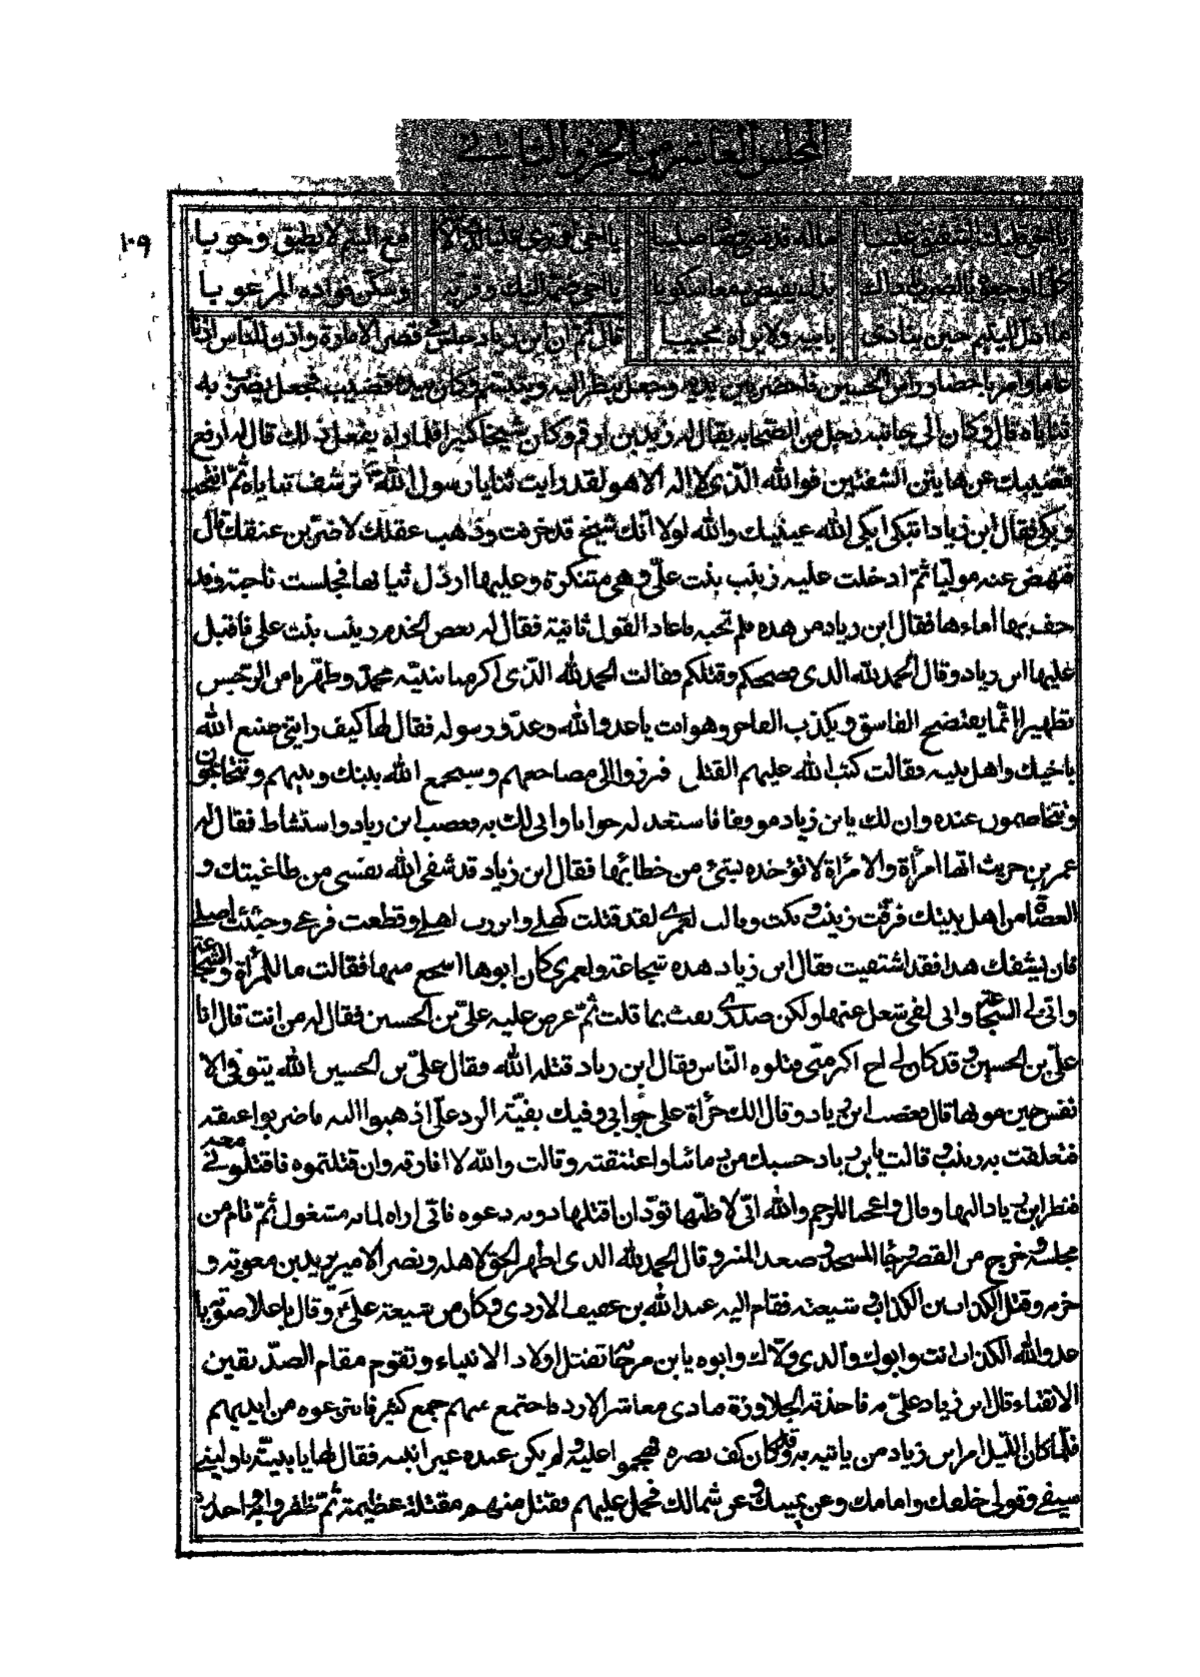 المجلس العاشر من الجزء الثاني
١٠٩
يا اخي فاطم
يا اخي لو ترى عليا لدى الا سر مع اليتم لا يطيق وجوبا
كلما اوجعوه بالضرب ناداك بذل يفيض دمعا سكوبا
يا اخي ضمه اليك وقربه وسكن فواده المرعوبا
ما اذل اليتيم حين ينادى بابيه ولا يراه مجيبا
قال ثم ان ابن زياد جلس في قصر الامارة واذن للناس اذنا
عاما وامر باحضار راس الحسين فاحضر بين يديه وجعل ينظر اليه ويتبسم وكان بيده قضيب فجعل يضرب به
ثناياه قال وكان الى جانبه رجل من الصحابه يقال له زيد بن ارقم وكان شيخا كبيرا فلما راه يفعل ذلك قال له ارفع
قضيبك عن هاتين الشفتين فوالله الذي لا اله الا هو لقد رايت ثنايا رسول الله ترشف ثناياه ثم انتحب
وبكى فقال ابن زياد اتبكي ابكى الله عينيك والله لولا انك شيخ قد خرفت وذهب عقلك لاضربن عنقك قال
فنهض عنه موليا ثم ادخلت عليه زينب بنت علي وهي متنكرة وعليها ارذل ثيابها فجلست ناحية وقد
حف بها اماءها فقال ابن زياد من هذه فلم تجبه فاعاد القول ثانية فقال له بعض الخدم زينب بنت علي فاقبل
عليها ابن زياد وقال الحمد لله الذي فضحكم وقتلكم فقالت الحمد لله الذي اكرمنا بنبيه محمد وطهرنا من الرجس
تطهيرا انما يفتضح الفاسق ويكذب الفاجر وهو انت يا عدو الله وعدو رسوله فقال لها كيف رايتي صنع الله
باخيك واهل بيته فقالت كتب الله عليهم القتل فبرزوا الى مضاجعهم وسيجمع الله بينك وبينهم وتتحاجون
وتتخاصمون عنده وان لك يابن زياد موقفا فاستعد له جوابا واني لك به فغضب ابن زياد واستشاط فقال له
عمر بن حريث انها امرأة والامرأة لا تؤخذ بشئ من خطائها فقال ابن زياد قد شفى الله نفسي من طاغيتك و
العصاة من اهل بيتك فرقت زينب وبكت وقالت لعمري لقد قتلت كهلي وابرزت اهلي وقطعت فرعي وجثثت اصلي
فان يشفك هذا فقد اشتفيت فقال ابن زياد هذه شجاعة ولعمري كان ابوها اشجع منها فقالت ما للمرأة والشجاعة
واني لي الشجاعة واني لفي شغل عنها ولكن صدري نفث بما قلت ثم عرض عليه علي بن الحسين فقال له من انت قال انا
علي بن الحسين وقد كان لي اخ اكبر مني قتلوه الناس فقال ابن زياد قتله الله فقال علي بن الحسين الله يتوفى الا
نفس حين موتها قال فغضب ابن زياد وقال الك جرأة على جوابي وفيك بقية الرد علي اذهبوا اليه فاضربوا عنقه
فتعلقت به زينب وقالت يابن زياد حسبك من دمائنا واعتنقته وقالت والله لا افارقه وان قتلتموه فاقتلوني معه
فنظر ابن زياد اليها وقال واعجبا للرحم والله اني لاظنها تود ان اقتلها دونه دعوه فاني اراه لما به مشغول ثم قام من
مجلسه وخرج من القصر وجاء المسجد وصعد المنبر وقال الحمد لله الذي اظهر الحق لاهله ونصر الامير يزيد بن معوية و
حزبه وقتل الكذاب بن الكذاب وشيعته فقام اليه عبد الله بن عفيف الازدي وكان من شيعة علي وقال باعلا صوته يا
عدو الله الكذاب انت وابوك والذي ولاك وابوه يا بن مرجانة تقتل اولاد الانبياء وتقوم مقام الصديقين
الاتقياء قال ابن زياد علي به فاخذته الجلاوزة فنادى معاشر الازد فاجتمع منهم جمع كثير فانتزعوه من ايديهم
فلما كان الليل امر ابن زياد من ياتيه به وقد كان كف بصره فهجموا عليه ولم يكن عنده غير ابنته فقال لها يا بنية ناوليني
سيفي وقولي خلفك وامامك وعن يمينك وعن شمالك فحمل عليهم فقتل منهم مقتلة عظيمة ثم ظفروا به واخذوه